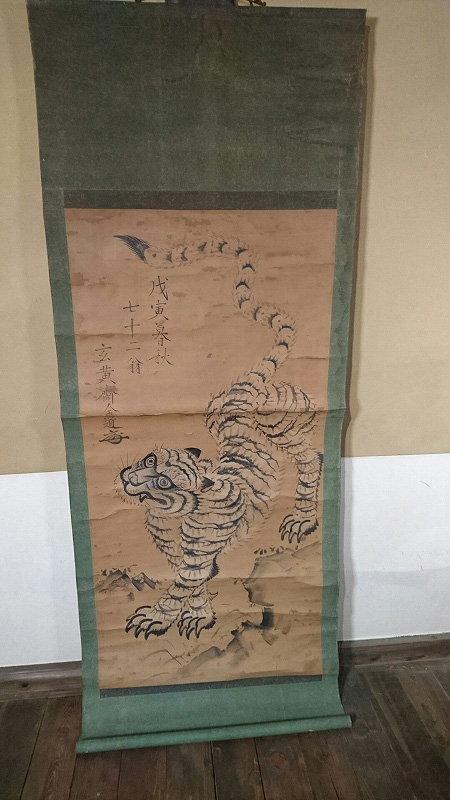 戊寅暮秋
七十二翁
玄黄齋